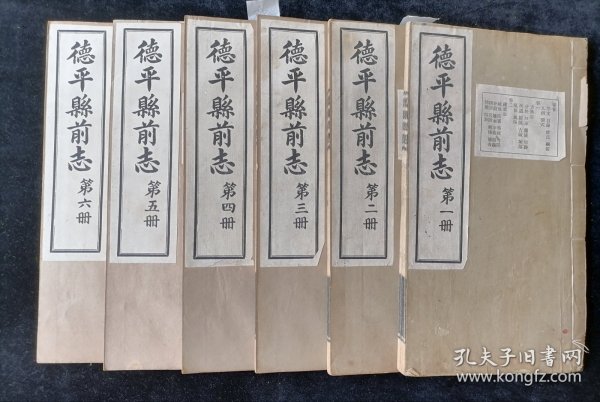 德平縣前志 第一册
德平縣前志 第二册
德平縣前志 第三册
德平縣前志 第四册
德平縣前志 第五册
德平縣前志 第六册
孔夫子旧书网
www.kongfz.com